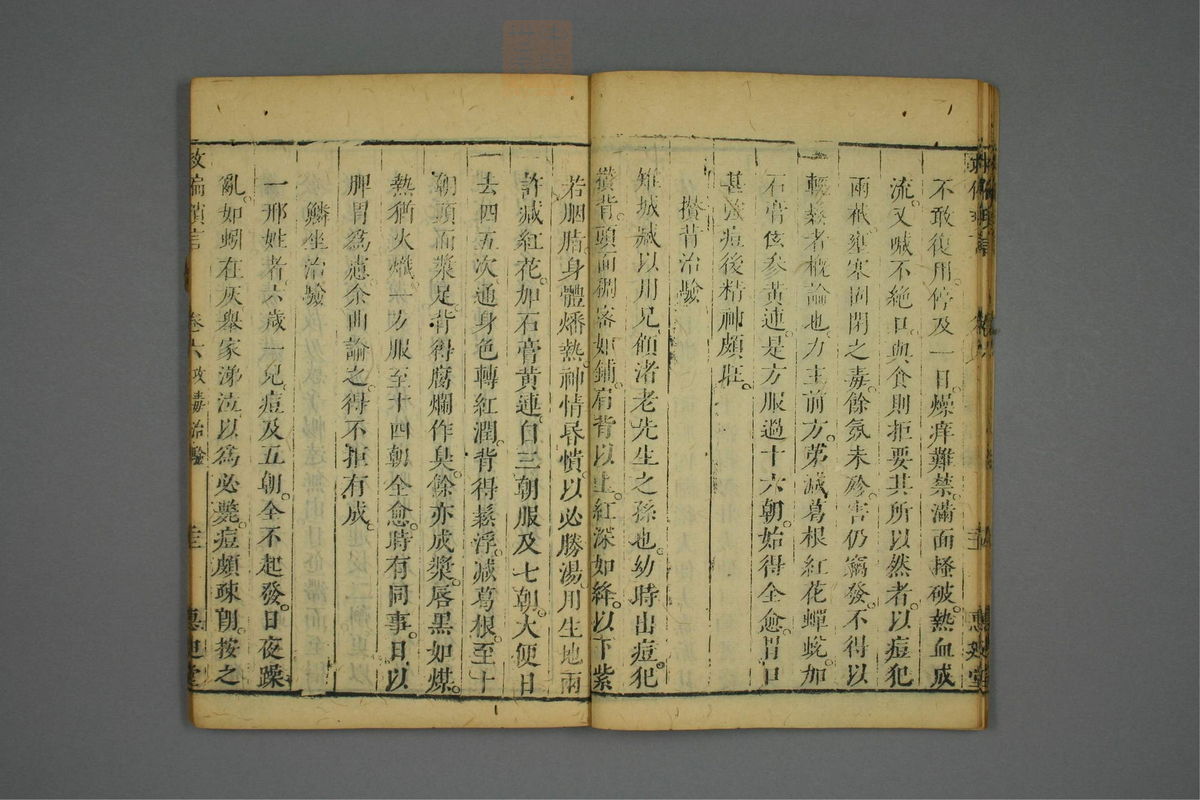 不敢復用。停及一日。燥痒難禁。滿面搔破。熱血成
流。又喊不絶口。與食則拒。要其所以然者。以痘犯
兩截。壅塞固閉之毒。餘氛未殄。害仍竊發。不得以
輕發者概論也。力主前方。苐減葛根紅花蟬蛻。加
石膏倍參黃連。是方服過十六朝。始得全愈。胃口
甚强。痘後精神頗旺。
攢背治驗
雉城臧以用兄。顧渚老先生之孫也。幼時出痘。犯
攢背。頭面稠密如鋪。肩背以上。紅深如絳。以下紫
若胭脂。身體燔熱。神情昏憒。以必勝湯用生地兩
許減紅花加石膏黃連。自三朝服及七朝。大便日
去四五次。通身色轉紅潤。背得鬆浮。减葛根。至十
朝。頭面漿足。背得腐爛作臭。餘亦成漿。唇黑如煤。
熱猶火熾。一方服至十四朝全愈。時有同事。日以
脾胃爲慮。余曲論之。得不拒有成。
鱗坐治驗
一邢姓者。六歲一兒。痘及五朝。全不起發。日夜躁
亂。如蚓在灰。舉家涕泣。以爲必斃。痘頗疎朗。按之
救偏瑣言
卷六 攻毒治驗
惠迪堂